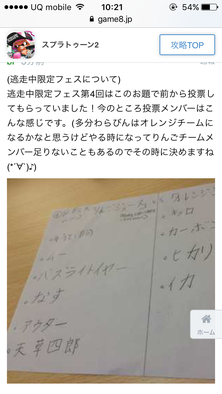 UQ mobile 10:21
game8.jp
スプラトゥーン2
攻略TOP
(逃走中限定フェスについて)
逃走中限定フェス第4回はこのお題で前から投票し
てもらっていました！今のところ投票メンバーはこ
んな感じです。(多分わらびんはオレンジチームに
なるかなと思うけどやる時になってりんごチームメ
ンバー足りないこともあるのでその時に決めますね
(*´∀`)♪)
ムー
バズライトイヤー
なす
アウター
天草四郎
ヒカリ
イカ
ホーム